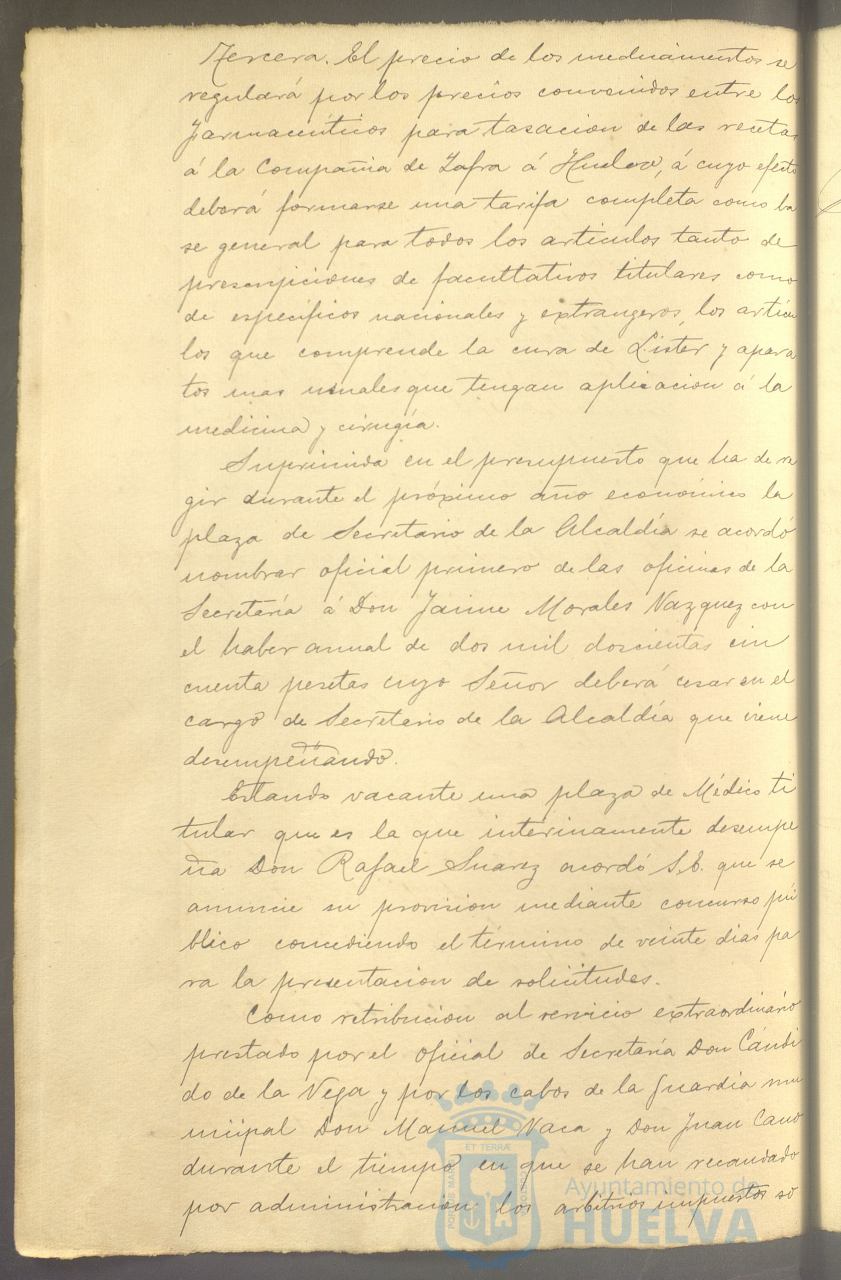 Tercera. El precio de los medicamentos se
regulará por los precios convenidos entre los
farmacéuticos para tasacion de las recetas
á la Compañia de Zafra á Huelva, á cuyo efecto
deberá formarse una tarifa completa como ba
se general para todos los articulos tanto de
prescripciones de facultativos titulares como
de especificos nacionales y extrangeros, los artícu
los que comprende la cura de Lister y apara
tos mas usuales que tengan aplicacion á la
medicina y cirugía.
Suprimida en el presupuesto que ha de re
gir durante el próximo año económico la
plaza de Secretario de la Alcaldía se acordó
nombrar oficial primero de las oficinas de la
Secretaría á Don Jaime Morales Vazquez con
el haber anual de dos mil doscientas cin
cuenta pesetas cuyo Señor deberá cesar en el
cargo de Secretario de la Alcaldía que viene
desempeñando.
Estando vacante una plaza de Médico ti
tular que es la que interinamente desempe
ña Don Rafael Suarez acordó S.E. que se
anuncie su provision mediante concurso pú
blico concediendo el término de veinte dias pa
ra la presentacion de solicitudes.
Como retribucion al servicio extraordinario
prestado por el oficial de Secretaría Don Cándi
do de la Vega y por los cabos de la Guardia mu
nicipal Don Manuel Vaca y Don Juan Cano
durante el tiempo en que se han recaudado
por administracion los arbitrios impuestos so
ET TERRÆ
Ayuntamiento de
HUELVA